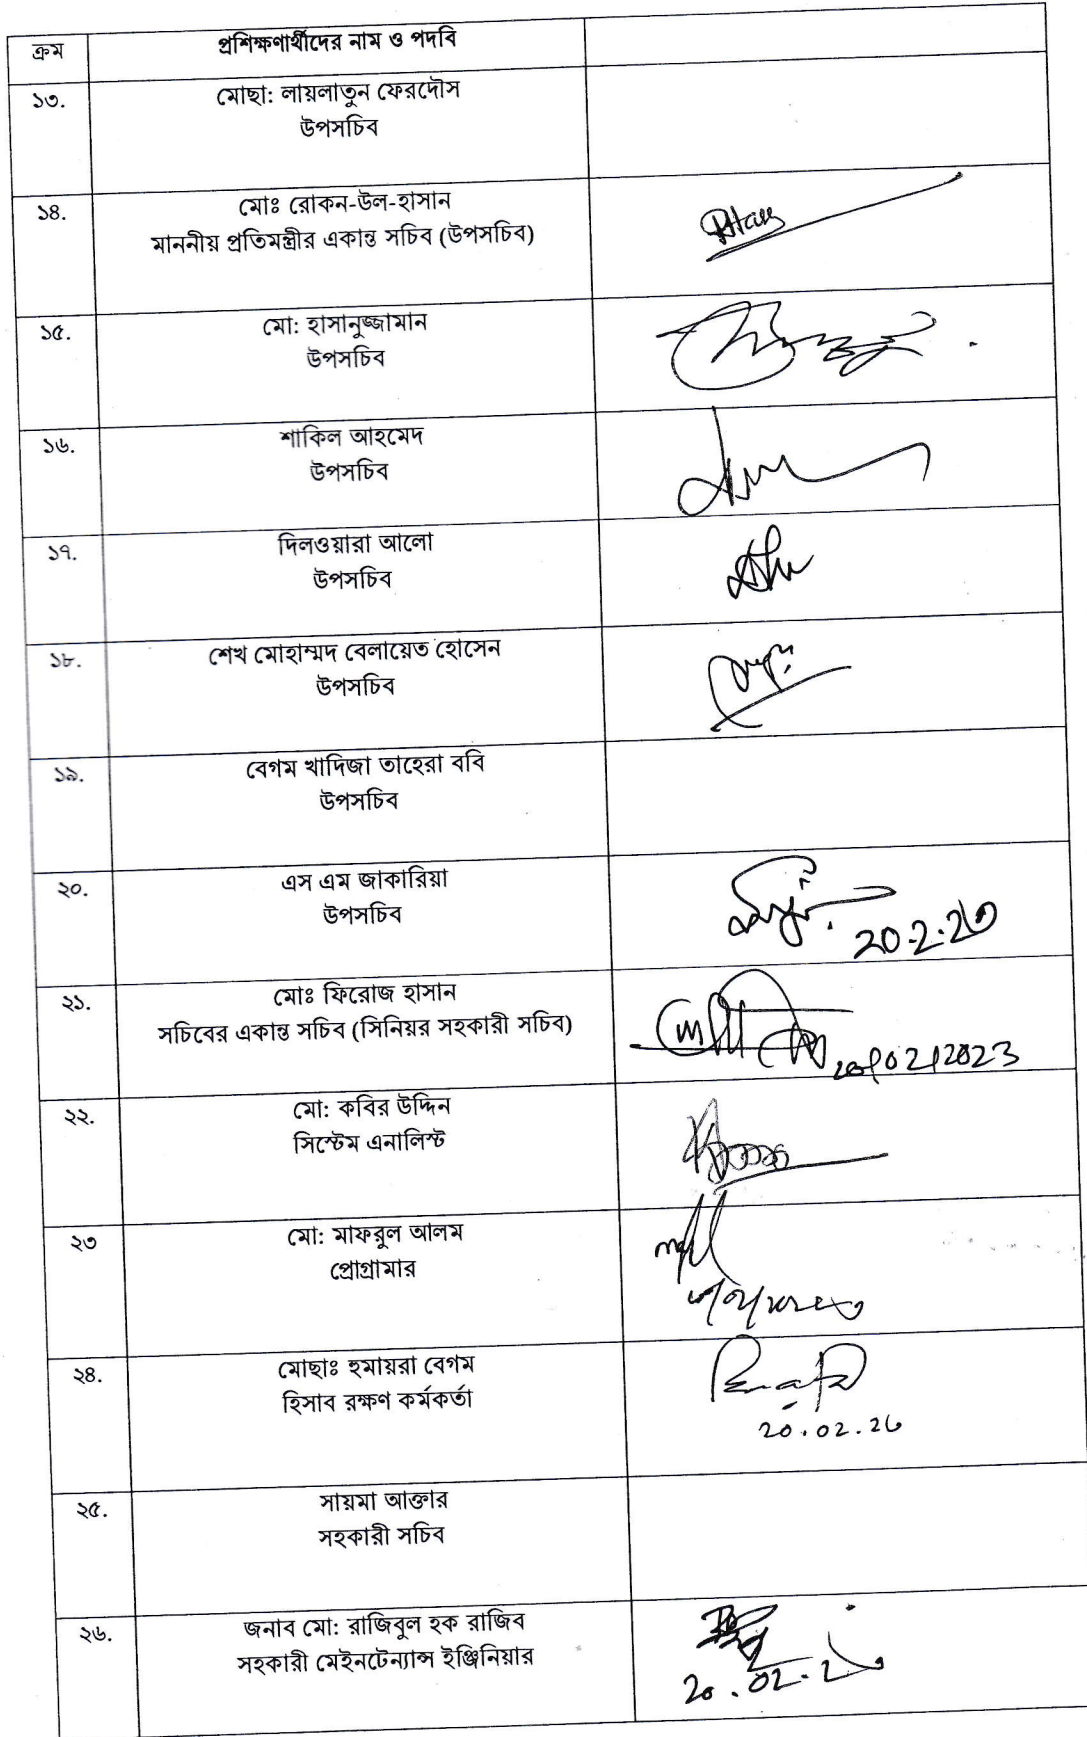 ক্রম
প্রশিক্ষণার্থীদের নাম ও পদবি
১৩.
মোছা: লায়লাতুন ফেরদৌস
উপসচিব
১৪.
মোঃ রোকন-উল-হাসান
মাননীয় প্রতিমন্ত্রীর একান্ত সচিব (উপসচিব)
১৫.
মো: হাসানুজ্জামান
উপসচিব
১৬.
শাকিল আহমেদ
উপসচিব
১৭.
দিলওয়ারা আলো
উপসচিব
১৮.
শেখ মোহাম্মদ বেলায়েত হোসেন
উপসচিব
১৯.
বেগম খাদিজা তাহেরা ববি
উপসচিব
২০.
এস এম জাকারিয়া
উপসচিব
২১.
মোঃ ফিরোজ হাসান
সচিবের একান্ত সচিব (সিনিয়র সহকারী সচিব)
20/02/2023
২২.
মো: কবির উদ্দিন
সিস্টেম এনালিস্ট
২৩
মো: মাফরুল আলম
প্রোগ্রামার
২৪.
মোছাঃ হুমায়রা বেগম
হিসাব রক্ষণ কর্মকর্তা
২৫.
সায়মা আক্তার
সহকারী সচিব
২৬.
জনাব মো: রাজিবুল হক রাজিব
সহকারী মেইনটেন্যান্স ইঞ্জিনিয়ার